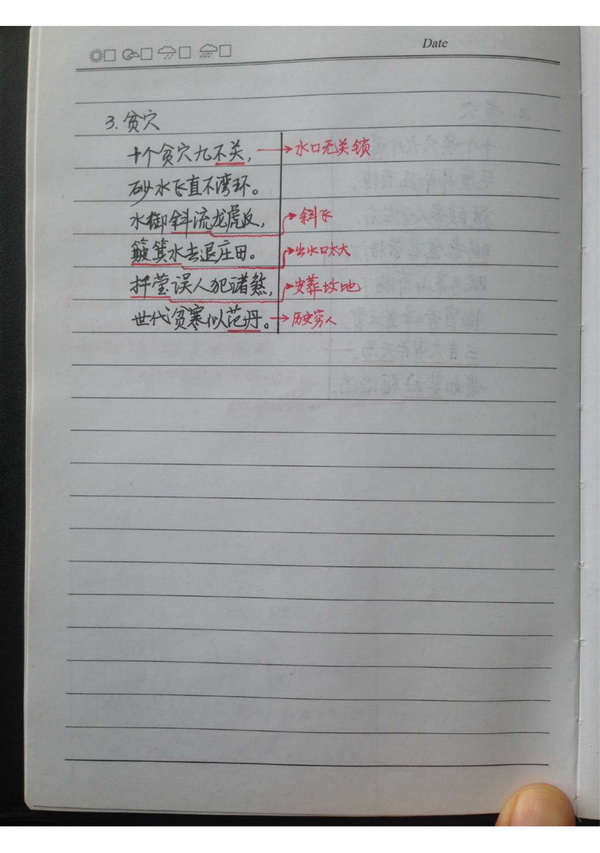 Date
3.贫穴
十个贫穴九不关，→水口无关锁
砂水飞直不湾环。
水御斜流龙虎反，→斜飞
簸箕水去退庄田。→出水口太大
扦莹误人犯诸煞，→安葬坟地
世代贫寒似范丹。→历史穷人